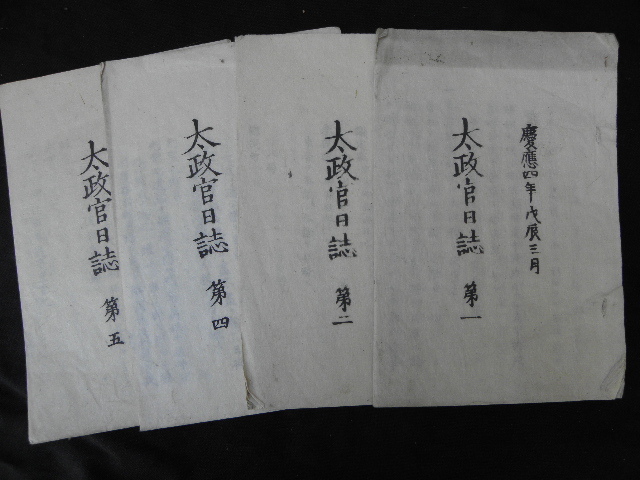 慶應四年戊辰三月
太政官日誌 第一
太政官日誌 第二
太政官日誌 第四
太政官日誌 第五